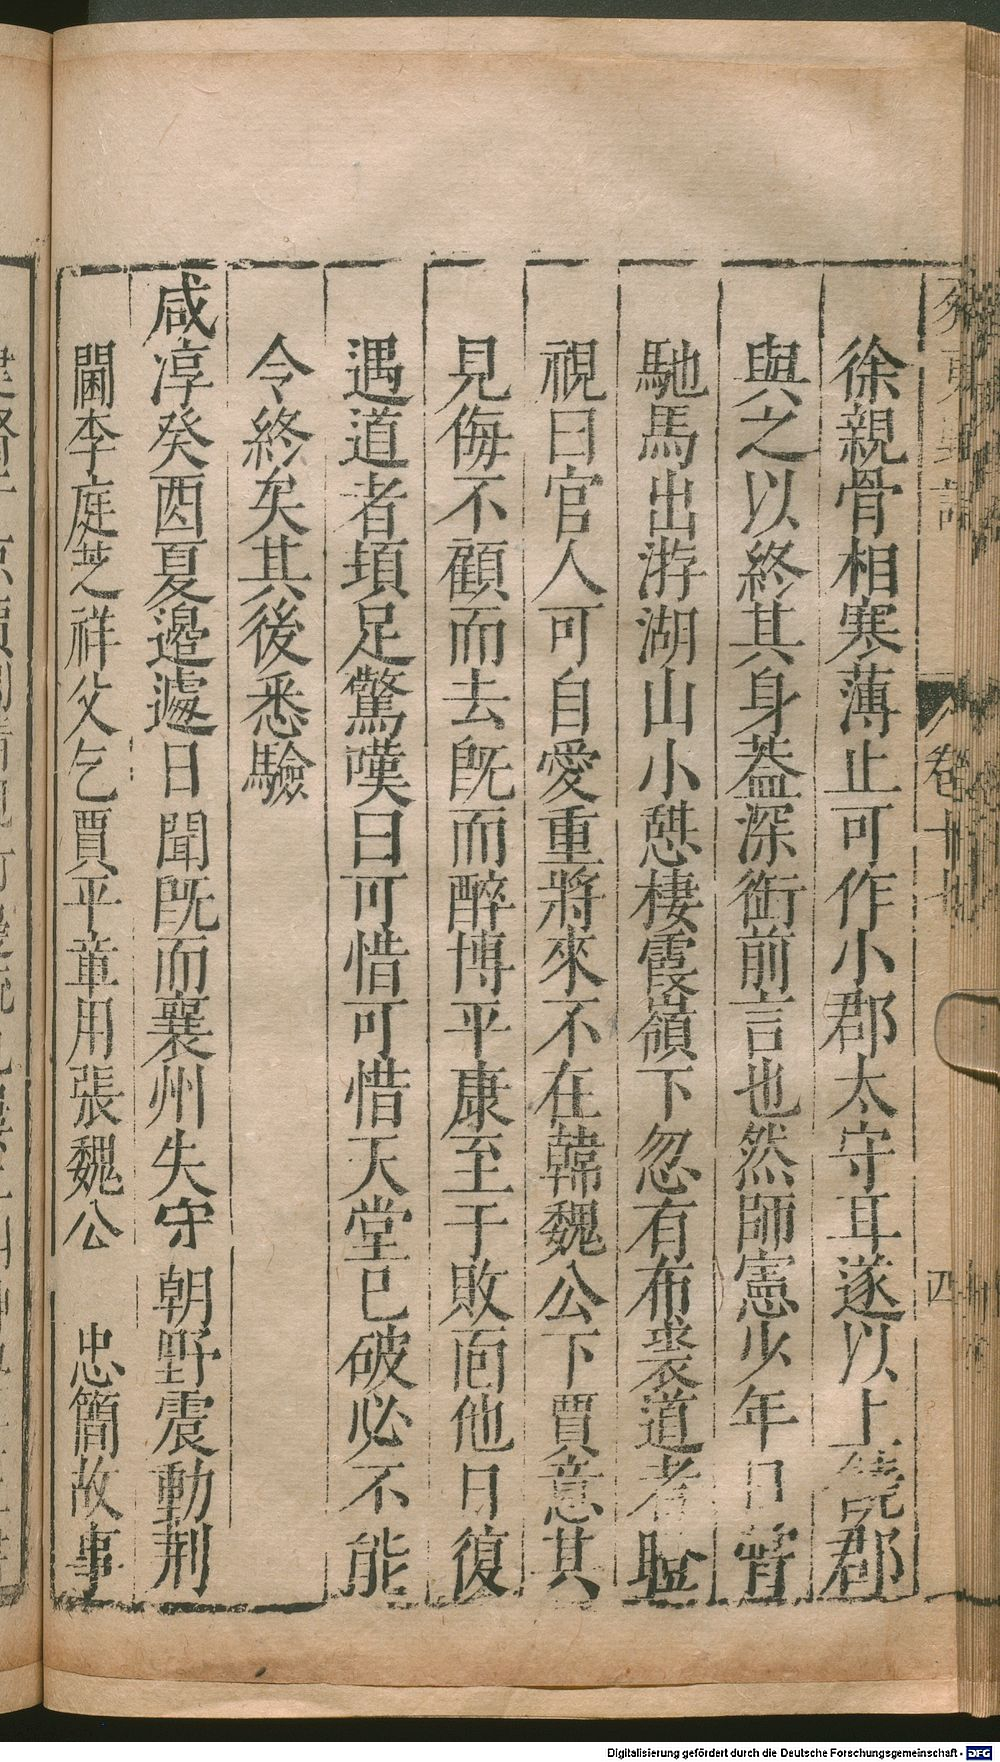 徐親骨相寒薄止可作小郡太守耳遂以上饒郡
與之以終其身蓋深銜前言也然師憲少年日嘗
馳馬出游湖山小憇棲霞嶺下忽有布裘道者瞪
視曰官人可自愛重將來不在韓魏公下賈意其
見侮不顧而去旣而醉博平康至于敗面他日復
遇道者頓足驚嘆曰可惜可惜天堂已破必不能
令終矣其後悉驗
咸淳癸酉夏邊遽日聞旣而襄州失守 朝野震動荆
閫李庭芝祥父乞賈平章用張魏公 忠簡故事
卷十七
四
Digitalisierung gefördert durch die Deutsche Forschungsgemeinschaft - DFG